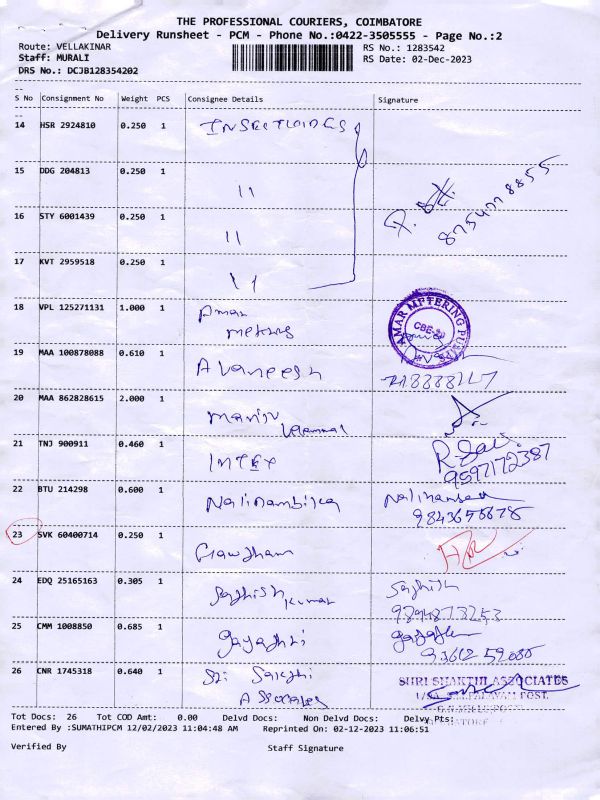 THE PROFESSIONAL COURIERS, COIMBATORE
Delivery Runsheet - PCM - Phone No.:0422-3505555 - Page No.:2
Route: VELLAKINAR
RS No.: 1283542
Staff: MURALI
RS Date: 02-Dec-2023
DRS No.: DCJB128354202
S No Consignment No Weight PCS Consignee Details Signature
14 HSR 2924810 0.250 1
15 DDG 204813 0.250 1 11
8754078855
16 STY 6001439 0.250 1 11
17 KVT 2959518 0.250 1 11
18 VPL 125271131 1.000 1 Amar
AMAR METERING PUMPS
CBE
19 MAA 100878088 0.610 1 Avaneesh
20 MAA 862828615 2.000 1
21 TNJ 900911 0.460 1 INTEX
9597172387
22 BTU 214298 0.600 1 Nalinambika
9843656678
23 SVK 60400714 0.250 1 Gowtham
24 EDQ 25165163 0.305 1 Sathish Kumar Sathish
9894873253
25 CMM 1008850 0.685 1 Gayathri
26 CNR 1745318 0.640 1 Sri Sakthi
Associates
SHRI SHAKTHI ASSOCIATES
POST,
Tot Docs: 26 Tot COD Amt: 0.00 Delvd Docs: Non Delvd Docs: Delvy Pts:
Entered By :SUMATHIPCM 12/02/2023 11:04:48 AM Reprinted On: 02-12-2023 11:06:51
Verified By Staff Signature